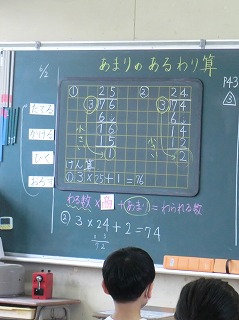 6/2
あまりのあるわり算
P43
③
たてる
かける
ひく
おろす
① 25
③)76
6
16
15
①
② 24
③)74
6
14
12
②
小さい
小さい
けん算
① 3×25+1=76
わる数×商+あまり=わられる数
② 3×24+2=74
72